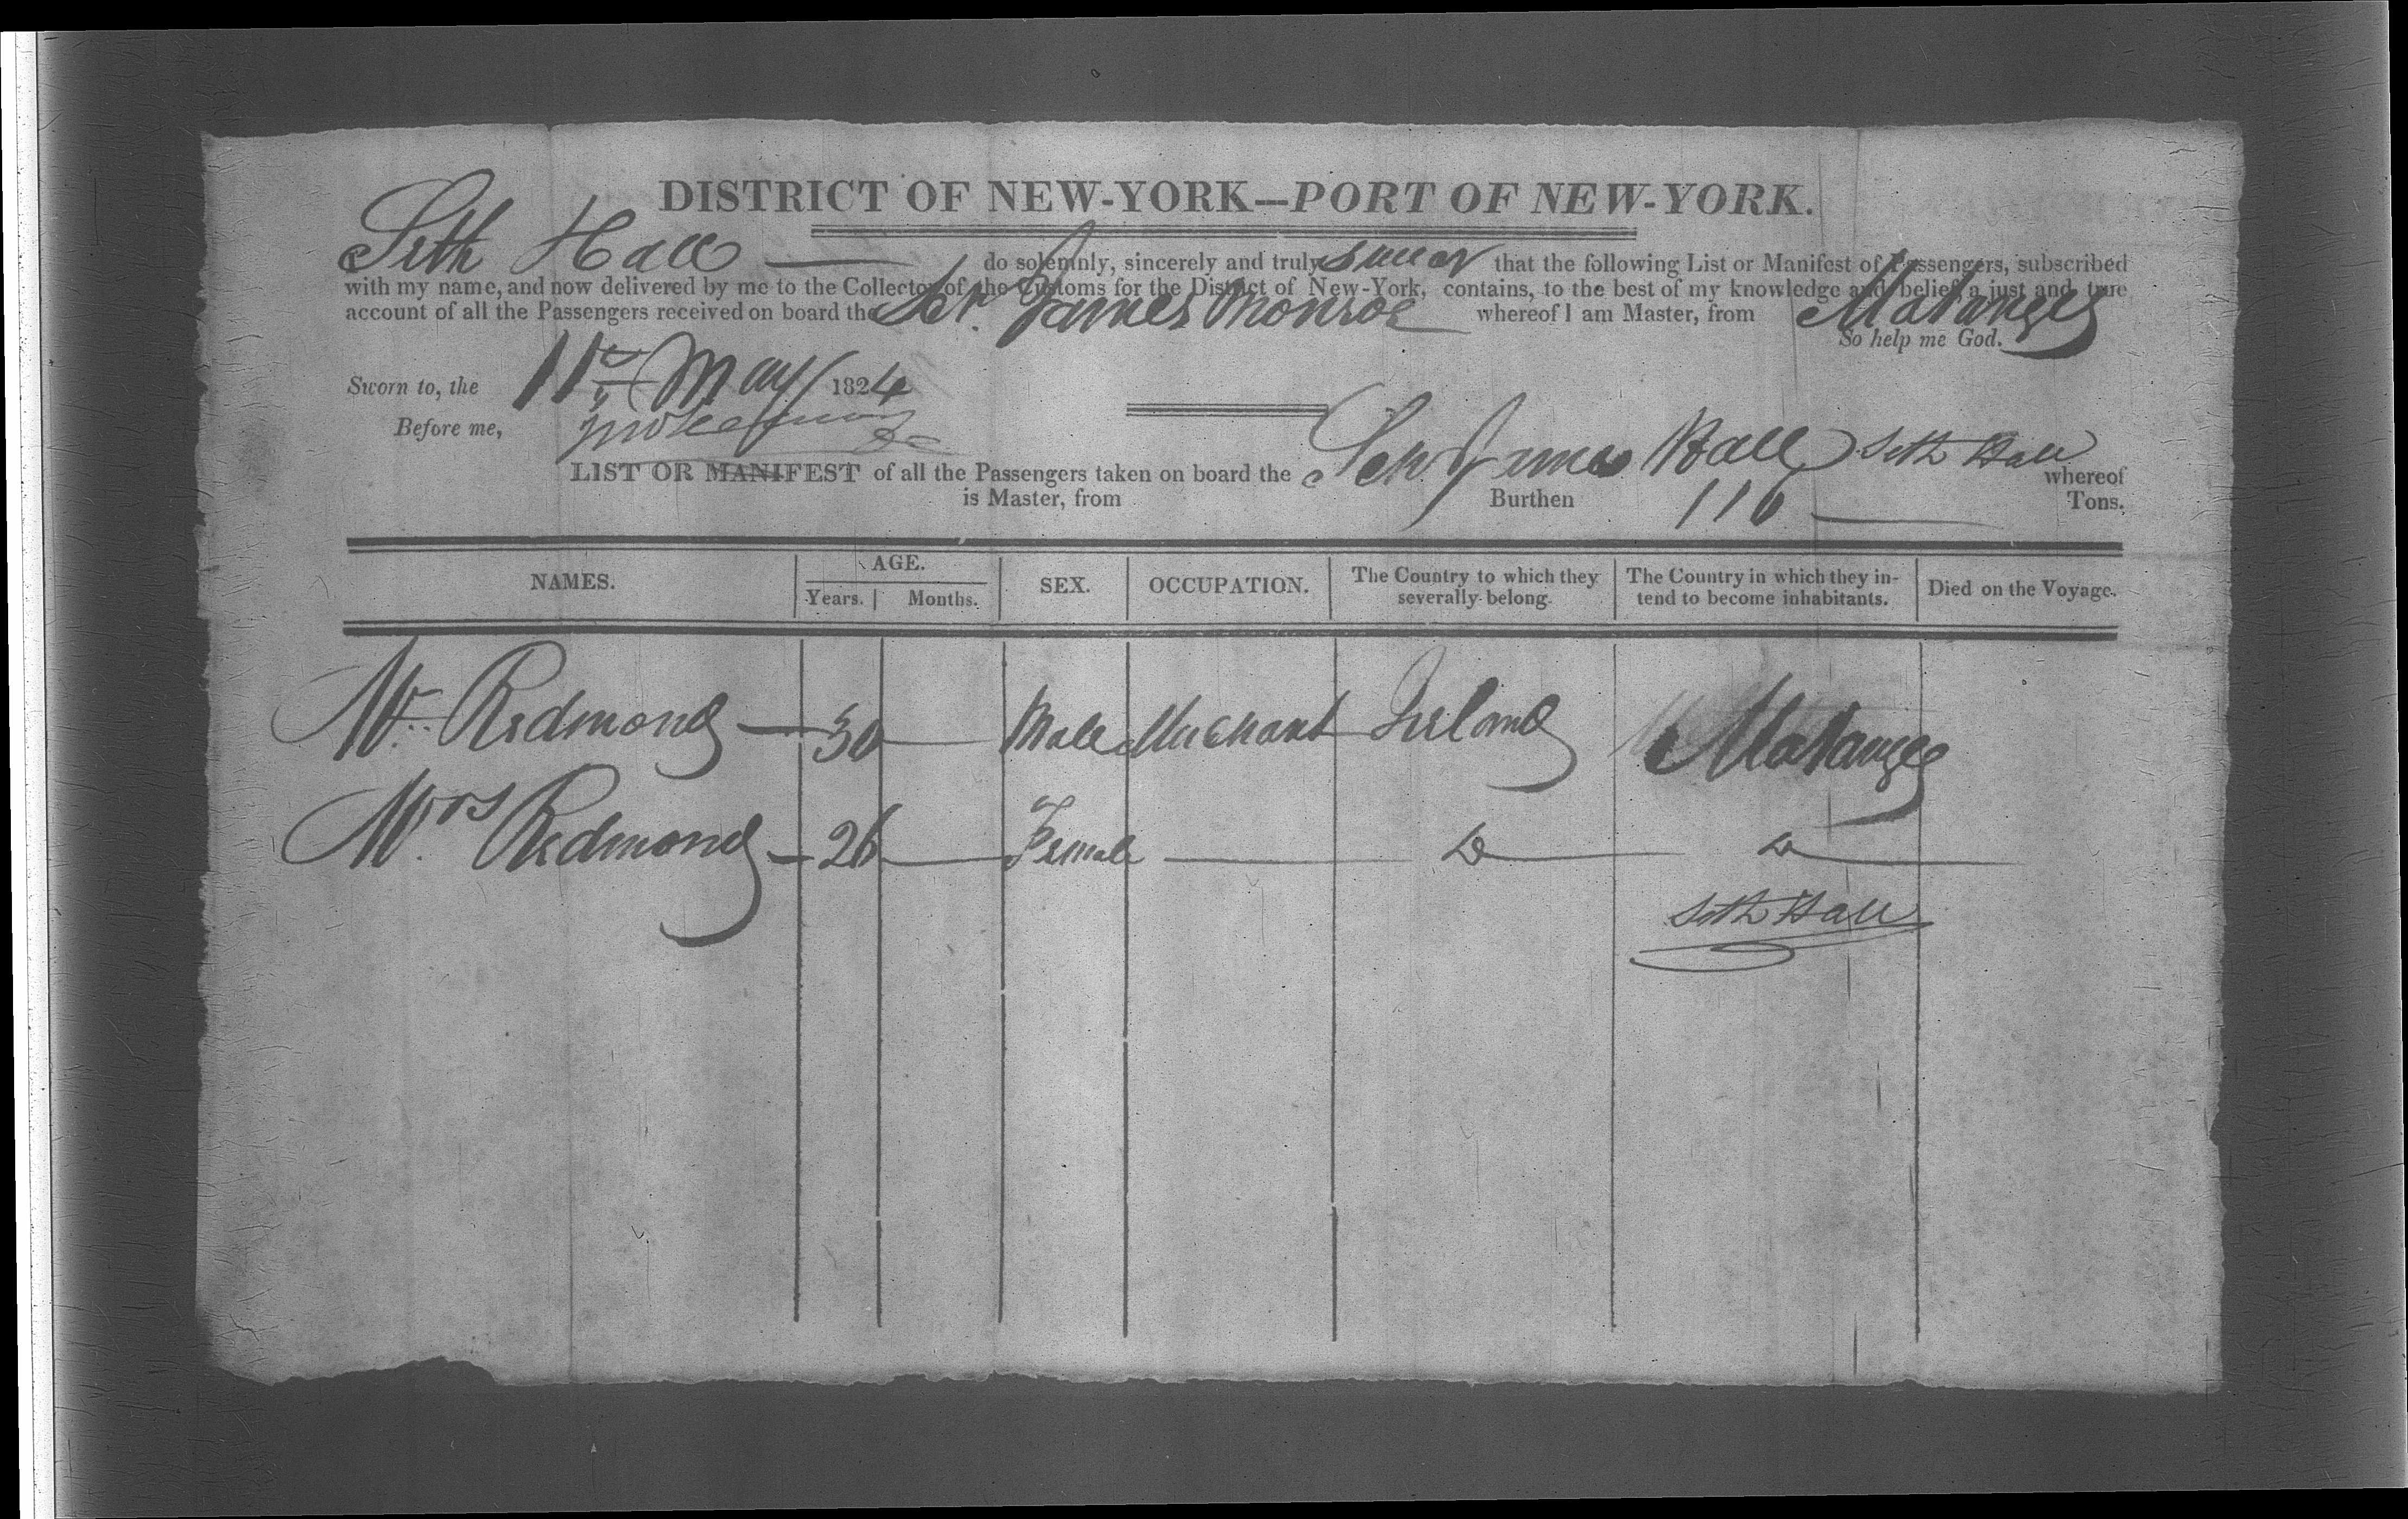 DISTRICT OF NEW-YORK—PORT OF NEW-YORK.
Seth Hall — do solemnly, sincerely and truly swear that the following List or Manifest of Passengers, subscribed
with my name, and now delivered by me to the Collector of the Customs for the District of New-York, contains, to the best of my knowledge and belief a just and true
account of all the Passengers received on board the Scr. James Monroe whereof I am Master, from Matanzas
So help me God.
Sworn to, the 11th May 1824
Before me,
LIST OR MANIFEST of all the Passengers taken on board the Schr James Hall Seth Hall whereof
is Master, from Burthen 116 — Tons.
NAMES. AGE. Years. Months. SEX. OCCUPATION. The Country to which they severally belong. The Country in which they intend to become inhabitants. Died on the Voyage.
Mr. Redmond — 30 — Male Merchant Ireland Matanzas
Mrs. Redmond — 26 — Female — Do — Do —
Seth Hall